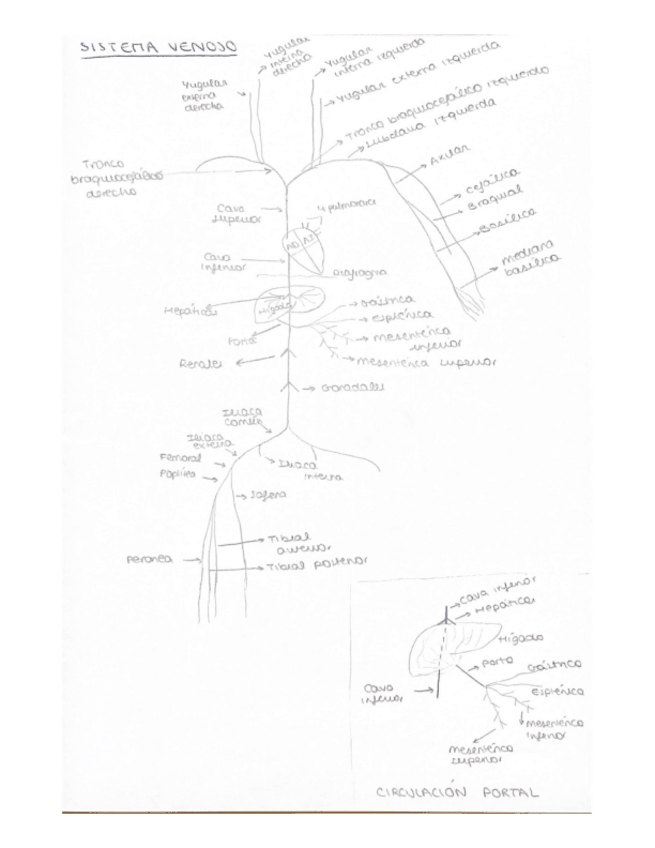 SISTEMA VENOSO
Yugular
interna
derecho
Yugular
interna izquierda
Yugular externa izquierda
Yugular
externa
derecha
Tronco braquiocefálico izquierdo
Subclavia izquierda
Tronco
braquiocefálico
derecho
Axilar
Cefálica
Braquial
Basílica
Mediana
basílica
Cava
superior
4 pulmonares
AD
AI
Cava
inferior
diafragma
Hepáticas
Hígado
Gástrica
Esplénica
Mesentérica
inferior
Mesentérica superior
Porta
Renales
Gonadales
Iliaca
común
Iliaca
externa
Femoral
Poplítea
Iliaca
interna
Safena
Tibial
anterior
Tibial posterior
Peronea
Cava inferior
Hepáticas
Hígado
Porta
Gástrica
Esplénica
Cava
inferior
Mesentérica
inferior
Mesentérica
superior
CIRCULACIÓN PORTAL